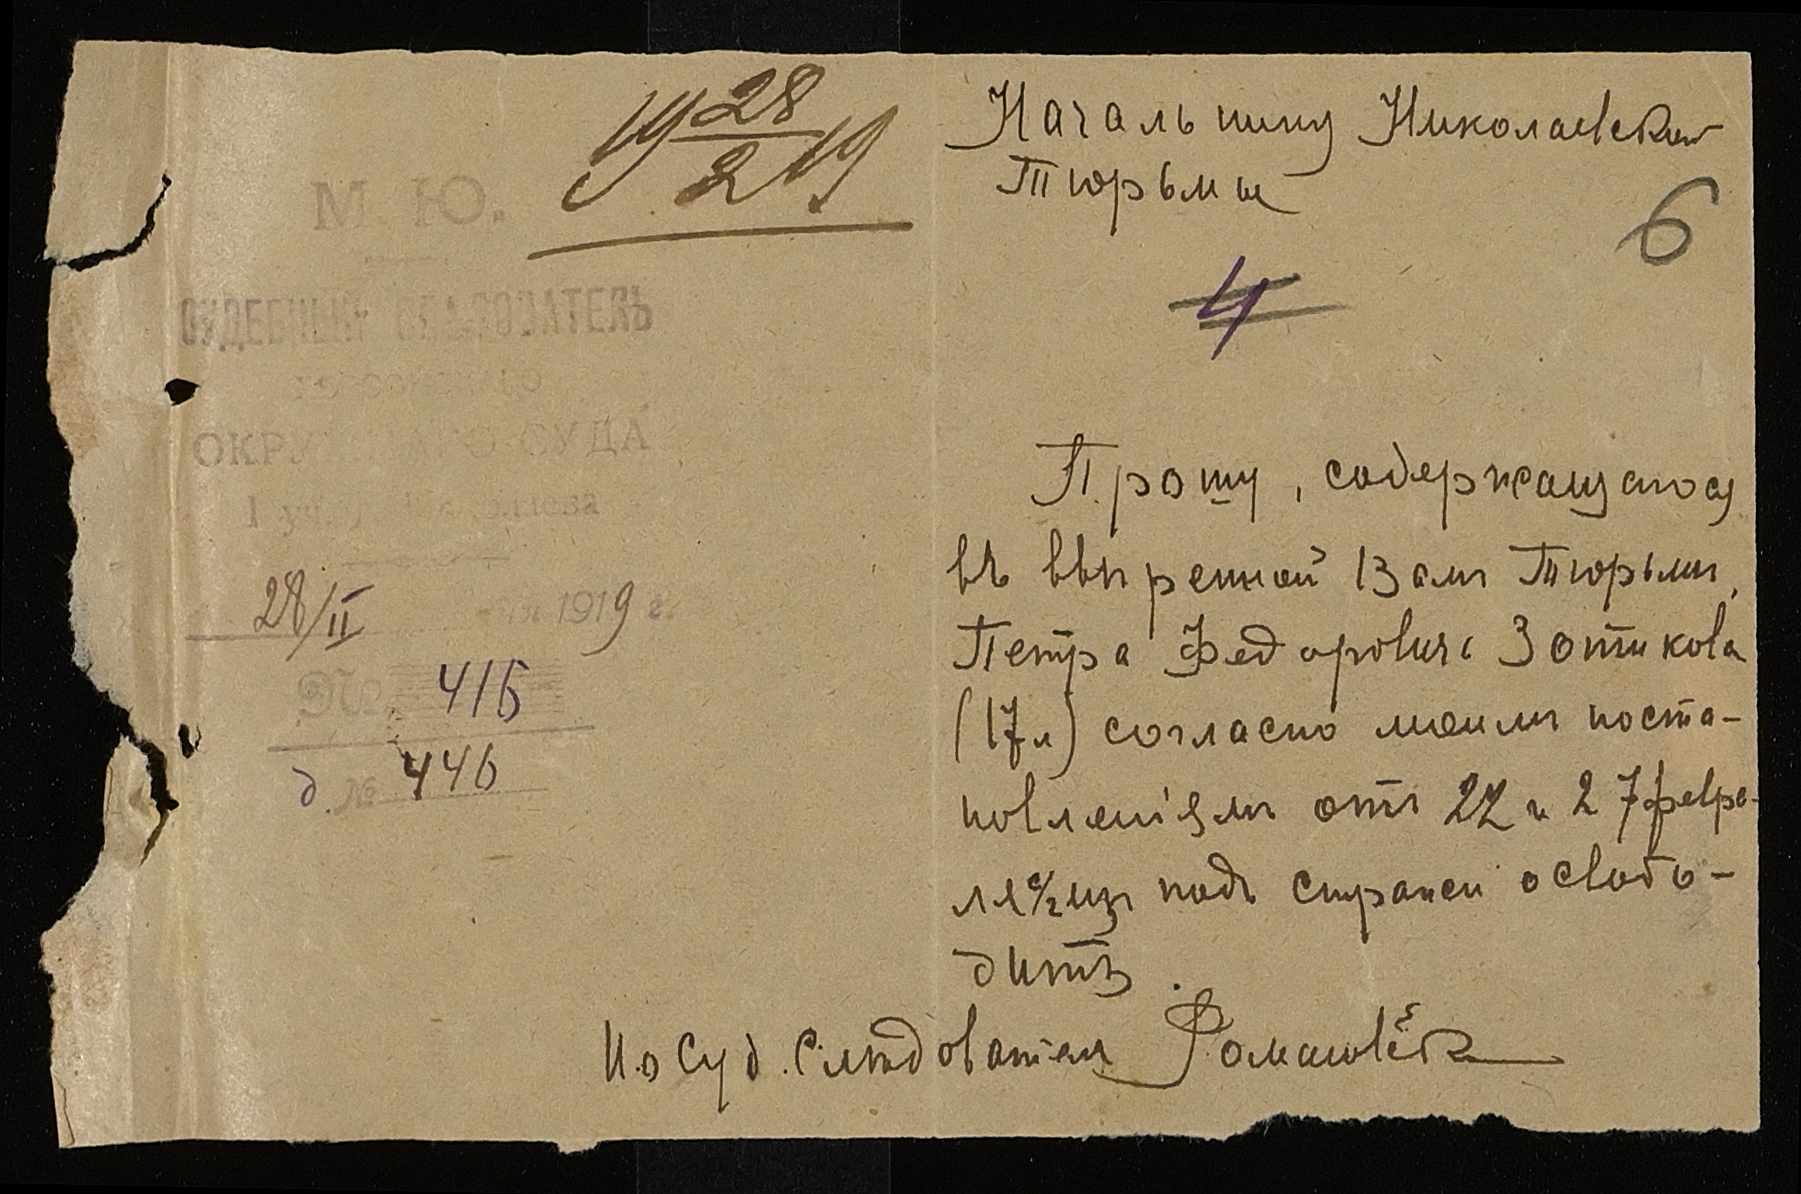 19 28/2 19
М. Ю.
СУДЕБНЫЙ СЛѢДОВАТЕЛЬ
ОКРУЖНАГО СУДА
1 уч.
28/II 1919 г.
№ 416
д. № 446
Начальнику Николаевской
Тюрьмы
6
4
Прошу, содержащагося
въ ввѣренной Вамъ Тюрьмѣ,
Петра Федоровича Зотикова
(17 л) согласно моимъ поста-
новленіямъ отъ 22 и 27 февра-
ля с/г изъ подъ стражи освобо-
дить.
И. о Суд. Слѣдователя